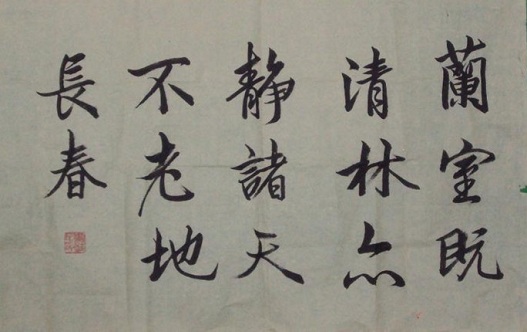 蘭室既
清林亦
靜諸天
不老地
長春